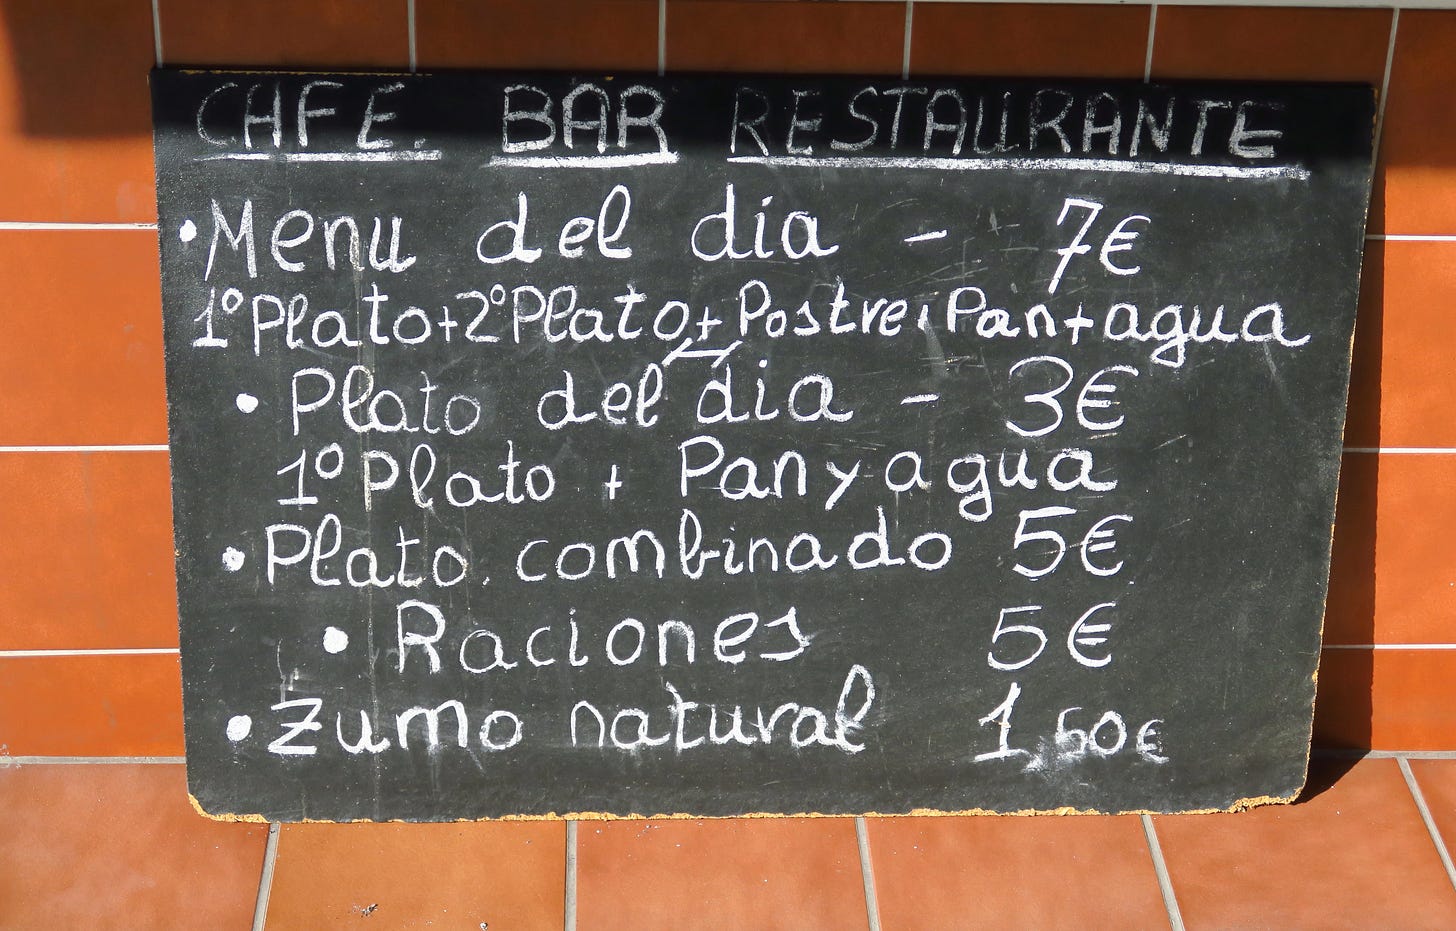 CAFE. BAR RESTAURANTE
•Menu del día - 7€
1º Plato+2º Plato+Postre+Pan+agua
• Plato del día - 3€
1º Plato + Pan y agua
•Plato. combinado 5€
• Raciones 5€
•Zumo natural 1,50€